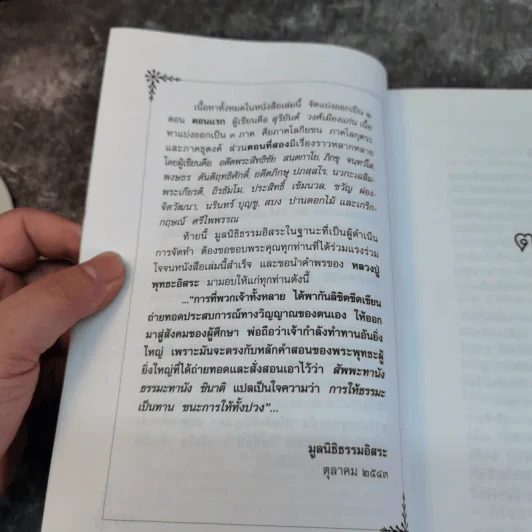 เนื้อหาทั้งหมดในหนังสือเล่มนี้ จัดแบ่งออกเป็น ๒
ตอน ตอนแรก ผู้เขียนคือ สุริยันต์ วงศ์เมืองแก่น เนื้อ
หาแบ่งออกเป็น ๓ ภาค คือภาคโลกียชน ภาคโลกุตระ
และภาคธุดงค์ ส่วนตอนที่สองมีเรื่องราวหลากหลาย
โดยผู้เขียนคือ อดีตพระสิทธิชัย สนฺตกาโย, ภิกษุ จนฺทวํโส,
พงษธร ตันติฤทธิศักดิ์, อดีตภิกษุ ปภสฺสโร, นวกะเฉลิม-
พระเกียรติ, ถิรธัมโม, ประสิทธิ์ เข้มนวล, ขวัญ ผ่อง-
จิตวัฒนา, นรินทร์ บุญชู, สบง ปานดอกไม้ และเกริก-
กฤษณ์ ศรีไพพรรณ
ท้ายนี้ มูลนิธิธรรมอิสระในฐานะที่เป็นผู้ดำเนิน
การจัดทำ ต้องขอขอบพระคุณทุกท่านที่ได้ร่วมแรงร่วม
ใจจนหนังสือเล่มนี้สำเร็จ และขอนำคำพรของ หลวงปู่
พุทธะอิสระ มามอบให้แก่ทุกท่านดังนี้
..."การที่พวกเจ้าทั้งหลาย ได้พากันลิขิตขีดเขียน
ถ่ายทอดประสบการณ์ทางวิญญาณของตนเอง ให้ออก
มาสู่สังคมของผู้ศึกษา พ่อถือว่าเจ้ากำลังทำทานอันยิ่ง
ใหญ่ เพราะมันจะตรงกับหลักคำสอนของพระพุทธะผู้
ยิ่งใหญ่ที่ได้ถ่ายทอดและสั่งสอนเอาไว้ว่า สัพพะทานัง
ธรรมะทานัง ชินาติ แปลเป็นใจความว่า การให้ธรรมะ
เป็นทาน ชนะการให้ทั้งปวง"...
มูลนิธิธรรมอิสระ
ตุลาคม ๒๕๔๓